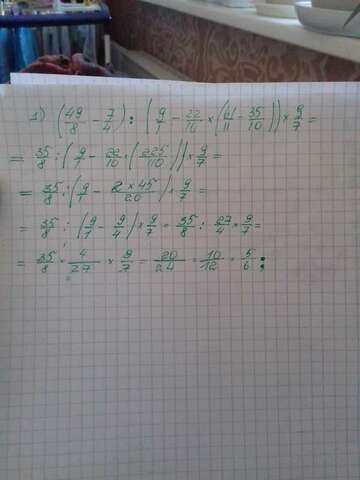 1) (49/8 - 7/4) : (9/1 - 22/10 × (61/11 - 35/10)) × 9/7 =
= 35/8 : (9/1 - 22/10 × (225/110)) × 9/7 =
= 35/8 : (9/1 - 2 × 45/20) × 9/7 =
= 35/8 : (9/1 - 9/4) × 9/7 = 35/8 : 27/4 × 9/7 =
= 35/8 × 4/27 × 9/7 = 20/24 = 10/12 = 5/6 ;